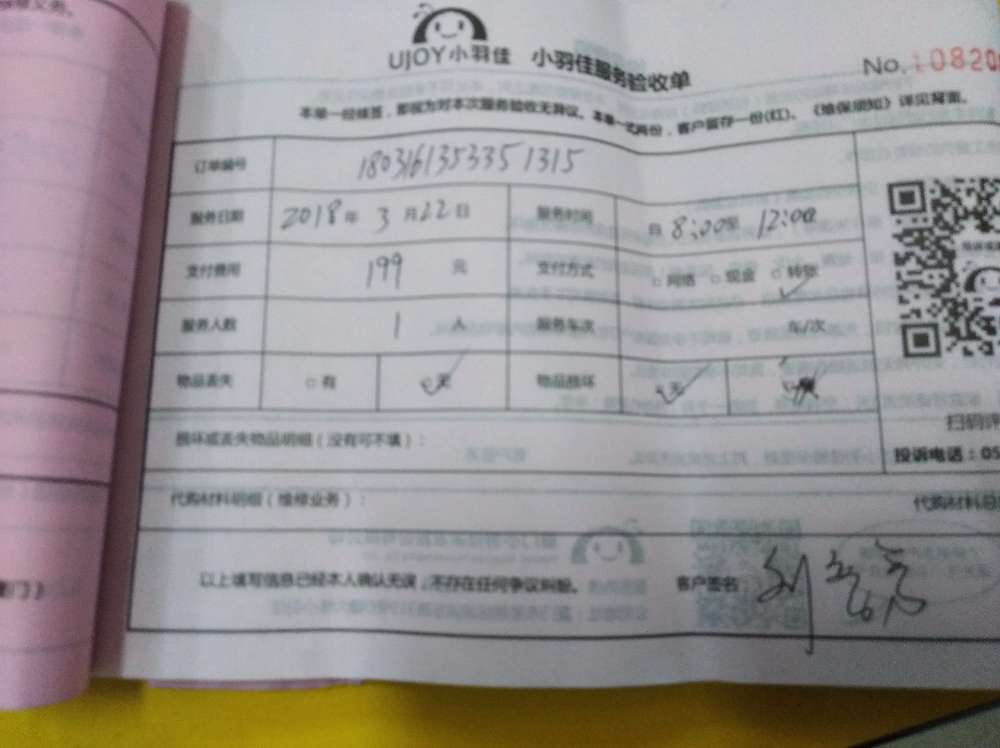 UJOY小羽佳 小羽佳服务验收单 No.108200
本单一经接签，即视为对本次服务验收无异议。本单一式两份，客户留存一份(红)。《维保须知》详见背面。
订单编号 180316135335 1315
服务日期 2018年3月22日 服务时间 自8:00至12:00
支付费用 199 元 支付方式 □网络 □现金 □转账
服务人数 1 人 服务车次 车/次
物品丢失 □有 □无 物品损坏 □无
损坏或丢失物品明细（没有可不填）：
扫码评
投诉电话：05
代购材料明细（维修业务）： 代购材料总
以上填写信息已经本人确认无误，不存在任何争议纠纷。 客户签名